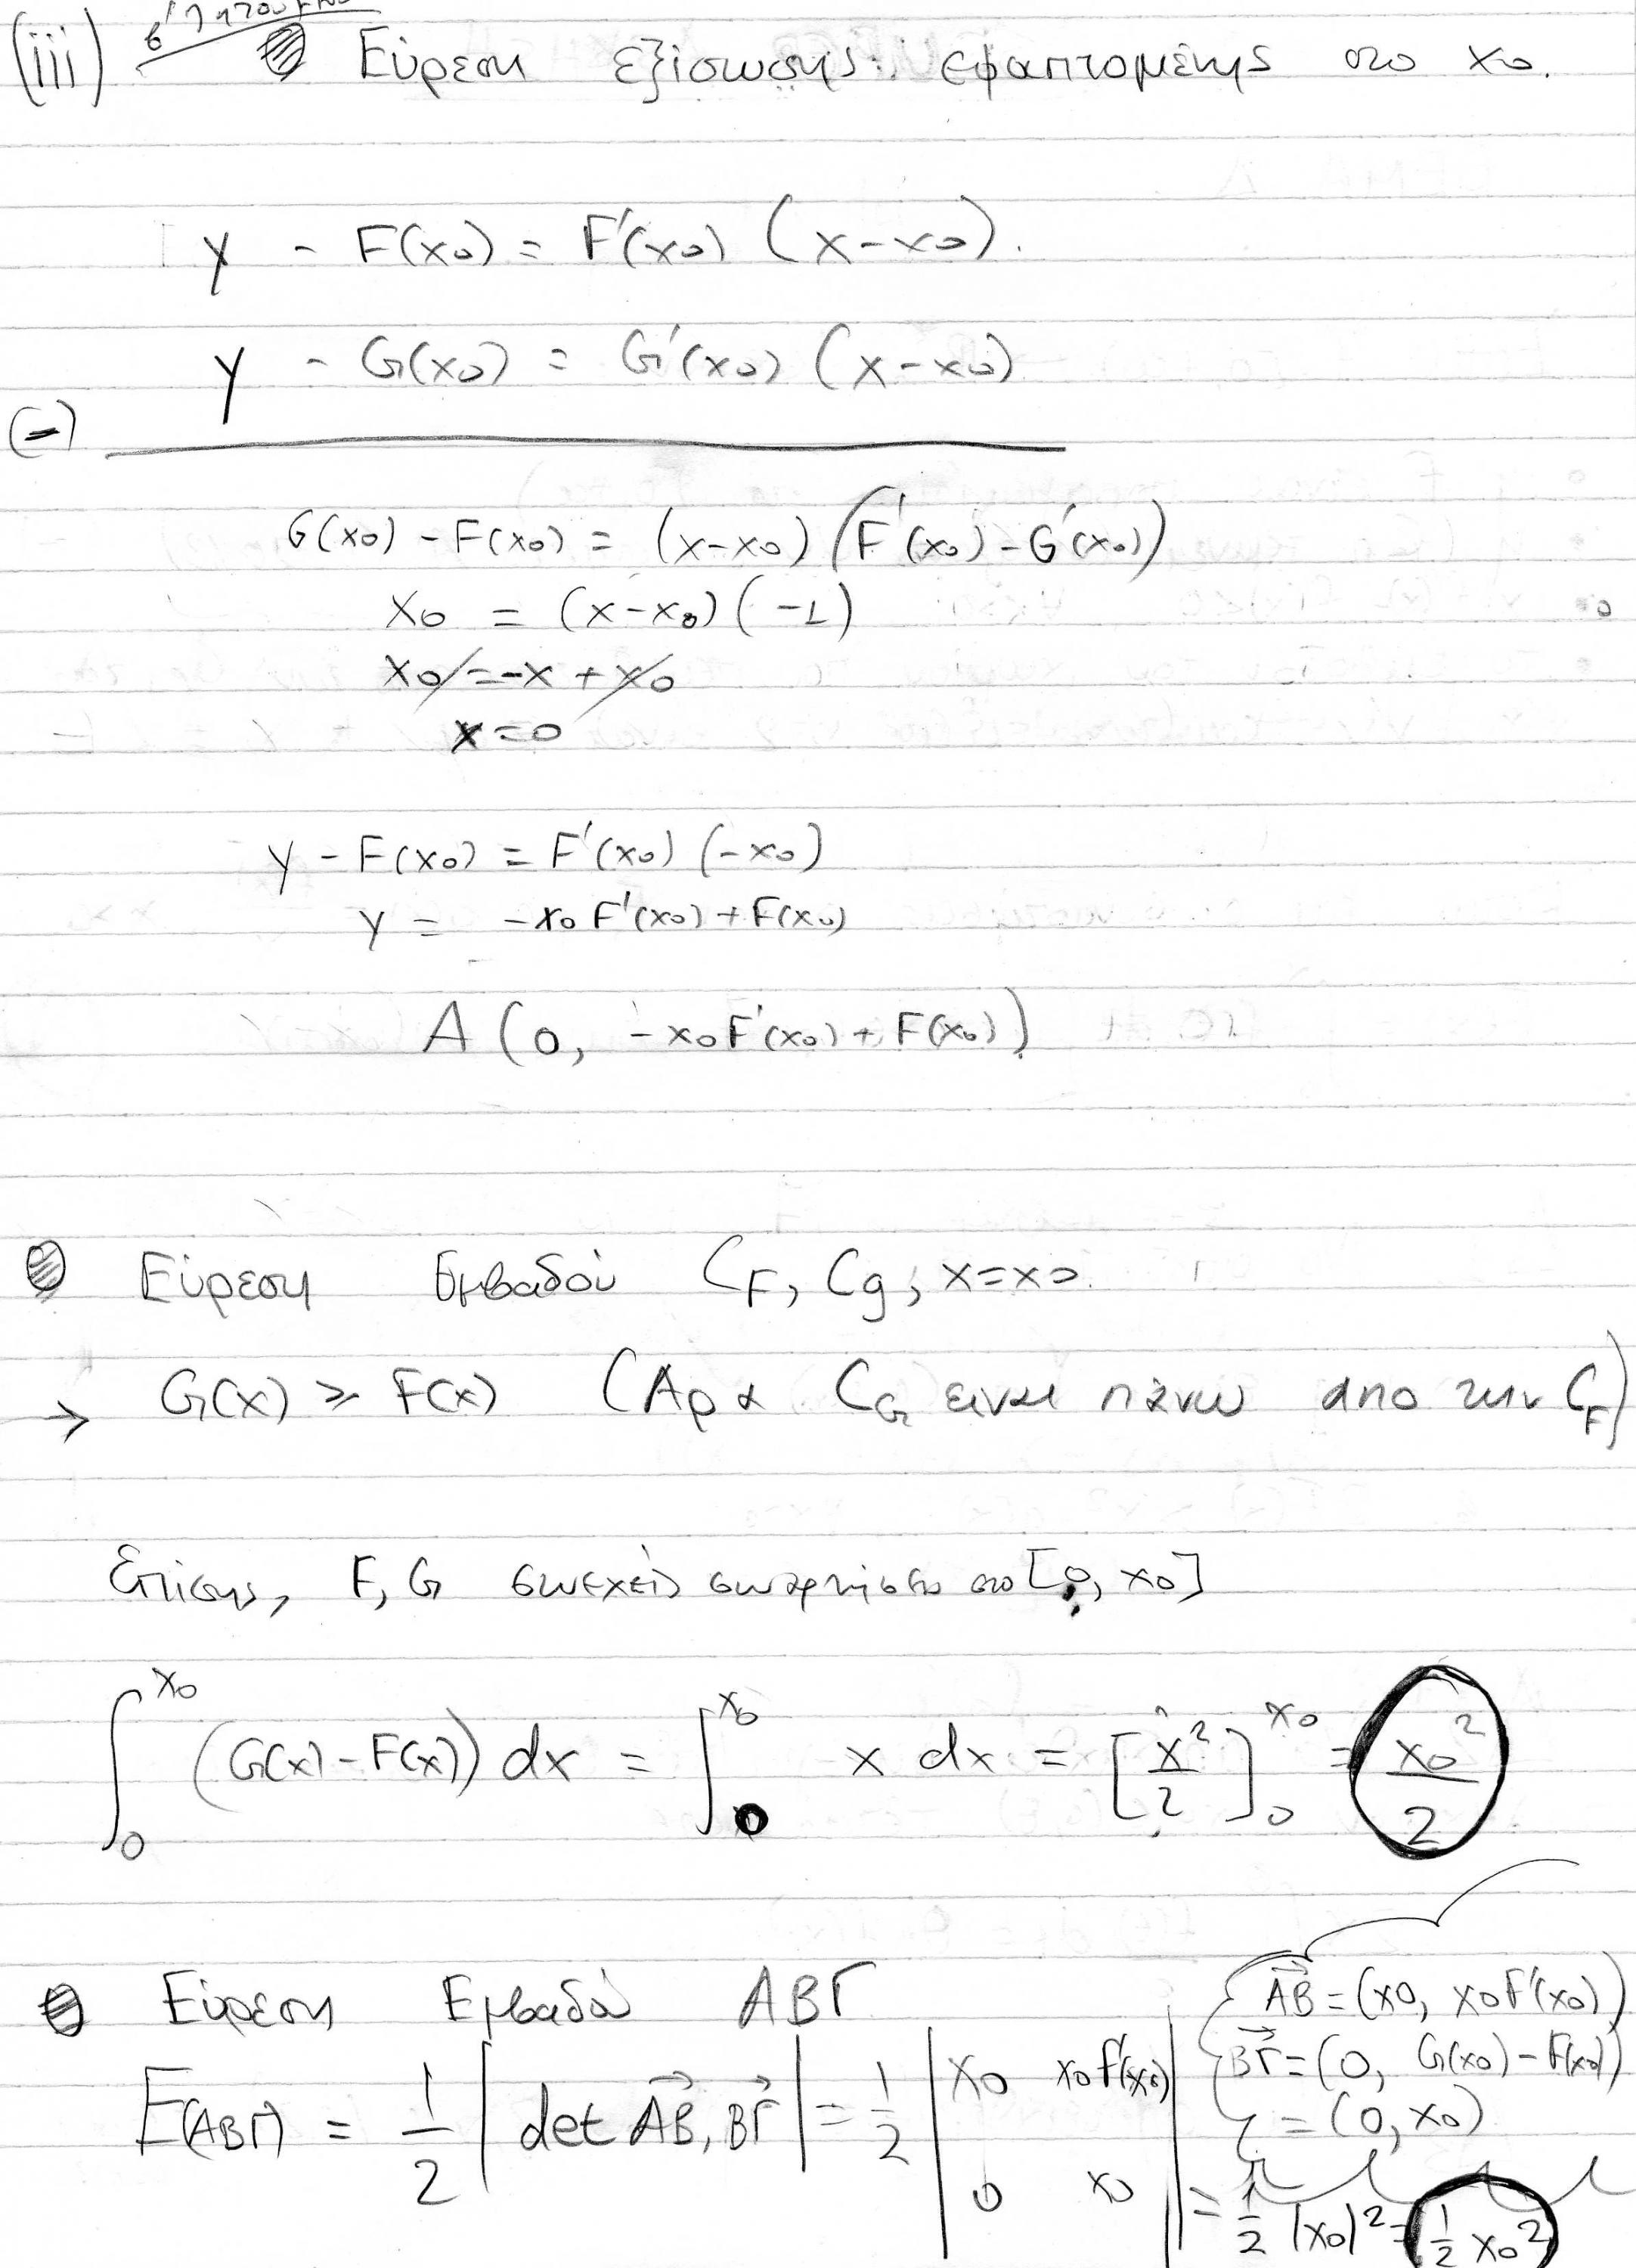 (iii)
Εύρεση εξίσωσης εφαπτομένης στο x₀.
y - F(x₀) = F'(x₀) (x-x₀).
y - G(x₀) = G'(x₀) (x-x₀)
(-)
G(x₀) - F(x₀) = (x-x₀) (F'(x₀) - G'(x₀))
x₀ = (x-x₀) (-1)
x₀ = -x + x₀
x=0
y - F(x₀) = F'(x₀) (-x₀)
y = -x₀ F'(x₀) + F(x₀)
A (0, -x₀F'(x₀) + F(x₀))
Εύρεση Εμβαδού C_F, C_g, x=x₀.
→ G(x) ≥ F(x) (Αρα C_G είναι πάνω απο την C_F)
Επίσης, F, G συνεχείς συναρτήσεις στο [0, x₀]
∫₀^x₀ (G(x) - F(x)) dx = ∫₀^x₀ x dx = [x²/2]₀^x₀ = x₀²/2
Εύρεση Εμβαδού ΑΒΓ
AB = (x₀, x₀F'(x₀))
ΒΓ = (0, G(x₀) - F(x₀))
= (0, x₀)
E(ΑΒΓ) = 1/2 |det AB, ΒΓ| = 1/2 |x₀ x₀F'(x₀)
0 x₀| = 1/2 |x₀|² = 1/2 x₀²